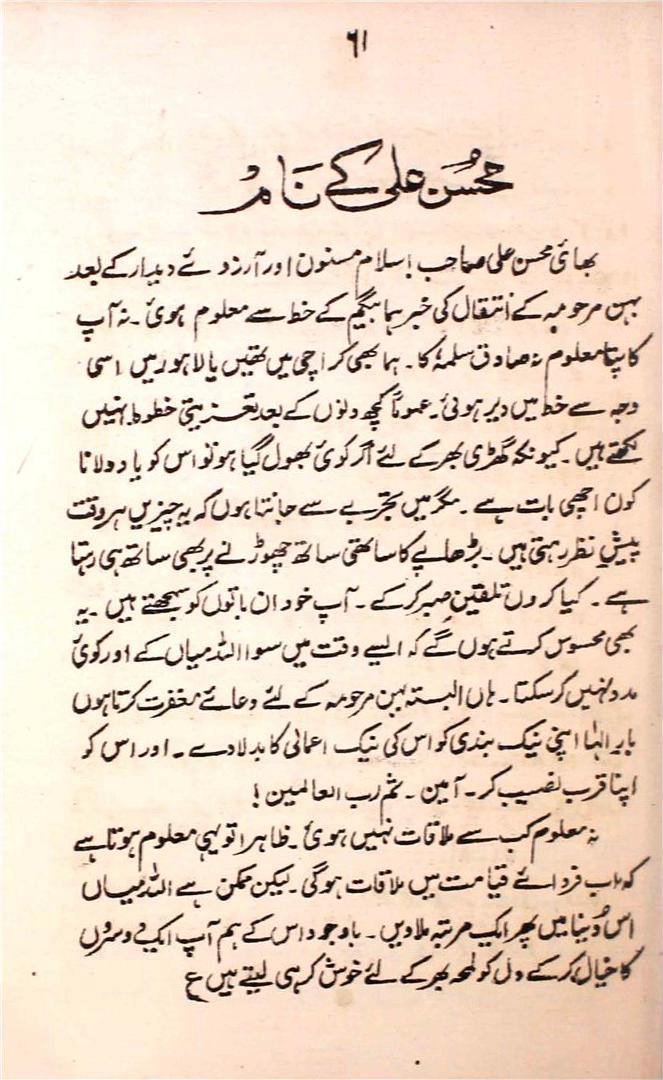 ۶۱
محسن علی کے نام
بھائی محسن علی صاحب! سلام مسنون اور آرزوئے دیدار کے بعد
بہن مرحومہ کے انتقال کی خبر ہما بیگم کے خط سے معلوم ہوئی۔ نہ آپ
کا پتا معلوم نہ صادق سلمہٗ کا۔ ہما بھی کراچی میں تھیں یا لاہور میں اسی
وجہ سے خط میں دیر ہوئی۔ عموماً کچھ دنوں کے بعد تعزیتی خطوط نہیں
لکھتے ہیں۔ کیونکہ گھڑی بھر کے لئے اگر کوئی بھول گیا ہو تو اس کو یاد دلانا
کون اچھی بات ہے۔ مگر میں تجربے سے جانتا ہوں کہ یہ چیزیں ہر وقت
پیشِ نظر رہتی ہیں۔ بڑھاپے کا ساتھی ساتھ چھوڑنے پر بھی ساتھ ہی رہتا
ہے۔ کیا کروں تلقینِ صبر کر کے۔ آپ خود ان باتوں کو سمجھتے ہیں۔ یہ
بھی محسوس کرتے ہوں گے کہ ایسے وقت میں سوا اللہ میاں کے اور کوئی
مدد نہیں کر سکتا۔ ہاں البتہ بہن مرحومہ کے لئے دعائے مغفرت کرتا ہوں
بار الٰہا اپنی نیک بندی کو اس کی نیک اعمالی کا بدلا دے۔ اور اس کو
اپنا قرب نصیب کر۔ آمین۔ ثم رب العالمین!
نہ معلوم کب سے ملاقات نہیں ہوئی۔ ظاہرا تو یہی معلوم ہوتا ہے
کہ اب فردائے قیامت میں ملاقات ہوگی۔ لیکن ممکن ہے اللہ میاں
اس دُنیا میں پھر ایک مرتبہ ملا دیں۔ باوجود اس کے ہم آپ ایک دوسروں
کا خیال کر کے دل کو لمحہ بھر کے لئے خوش کر ہی لیتے ہیں ع